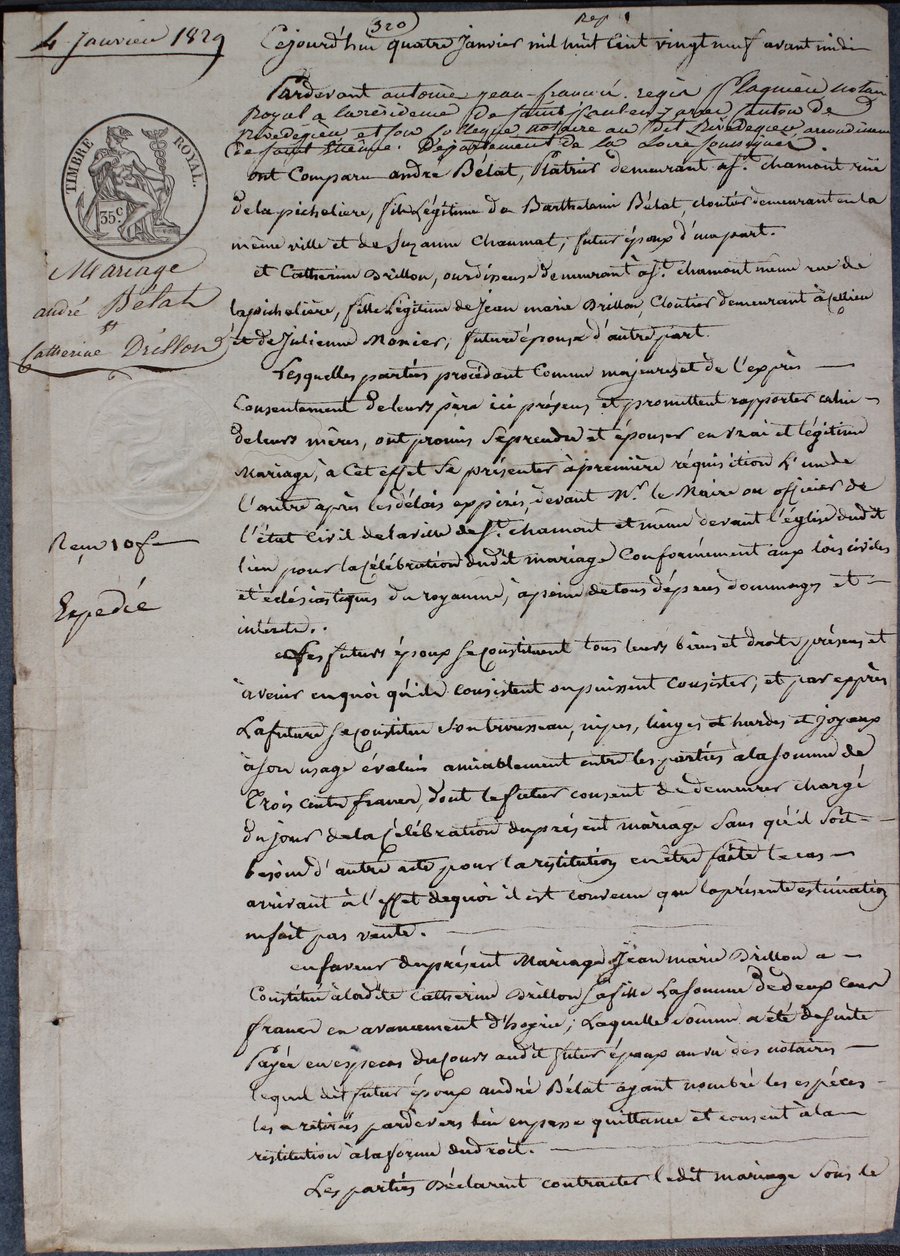 4 Janvier 1829
320
Rep. 1
Cejourd'hui quatre Janvier mil huit Cent vingt neuf avant midi
Pardevant antoine jean-francois regis flaquiere notaire
Royal a la résidence de Saint Paul en jarez canton de
Rivedegier et son Collegue notaire au dit Rivedegier arrondissement
de Saint Etienne. Département de la Loire soussignés
ont Comparu andré Bélat, Platrier demeurant a St. chamont rüe
de la picheliere, fils Légitime de Barthelemi Bélat, cloutier demeurant en la
même ville et de Suzanne Chaumat, futur époux d'une part.
et Catherine Drillon, ourdisseuse demeurant à St. chamont meme rue de
la picheliére, fille Légitime de Jean marie Drillon, Cloutier demeurant à Cellieu
et de Julienne Monier, future épouse d'autre part.
Lesquelles parties procédant Comme majeures et de l'exprès
Consentement de leurs père ici présens et promettent rapporter celui
de leurs mères, ont promis se prendre et épouser en vrai et légitime
Mariage, à Cet effet se présenter à première réquisition L'un de
l'autre après les délais expirés, devant Mr. le Maire ou officier de
l'état Civil de la ville de St. chamont et même devant l'église dudit
lieu pour la Célébration dudit mariage Conformément aux lois civiles
et éclésiastiques du royaume, à peine de tous dépens dommages et
intérêts.
Les futurs époux se Constituent tous leurs biens et droits présens et
à venir en quoi qu'ils consistent ou puissent consister, et par exprès
La future se constitue son trousseau, nipes, linges et hardes et joyaux
à son usage évalués amiablement entre les parties à la somme de
Trois Cents francs, dont le futur consent de demeurer chargé
du jour de la Célébration du présent mariage Sans qu'il soit
besoin d'autre acte pour la restitution en être faite le cas
arrivant à l'effet de quoi il est convenu que la présente estimation
ne fait pas vente.
en faveur du présent Mariage Jean marie Drillon a
Constitué à ladite Catherine Drillon sa fille La somme de deux Cens
francs en avancement d'hoirie; Laquelle somme a été de suite
Payée en espèces du Cours audit futur époux au vu des notaires
lequel dit futur époux andré Bélat ayant nombré les espéces
les a retirées pardevers lui en passe quittance et consent à la
restitution à la forme du droit.
Les parties Déclarent contracter ledit mariage sous le
TIMBRE ROYAL.
35c
Mariage
andré Bélat
et
Catherine Drillon
Reçu 10 f
Expedié